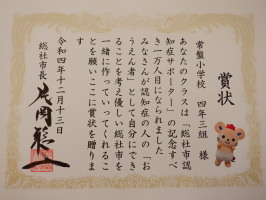 賞状
常盤小学校　四年三組　様
あなたのクラスは「総社市認
知症サポーター」の記念すべ
き一万人目になられました
みなさんが認知症の人の「お
うえん者」として自分にでき
ることを考え優しい総社市を
一緒に作っていってくれるこ
とを願いここに賞状を贈りま
す
令和四年十二月十三日
総社市長　片岡聡一